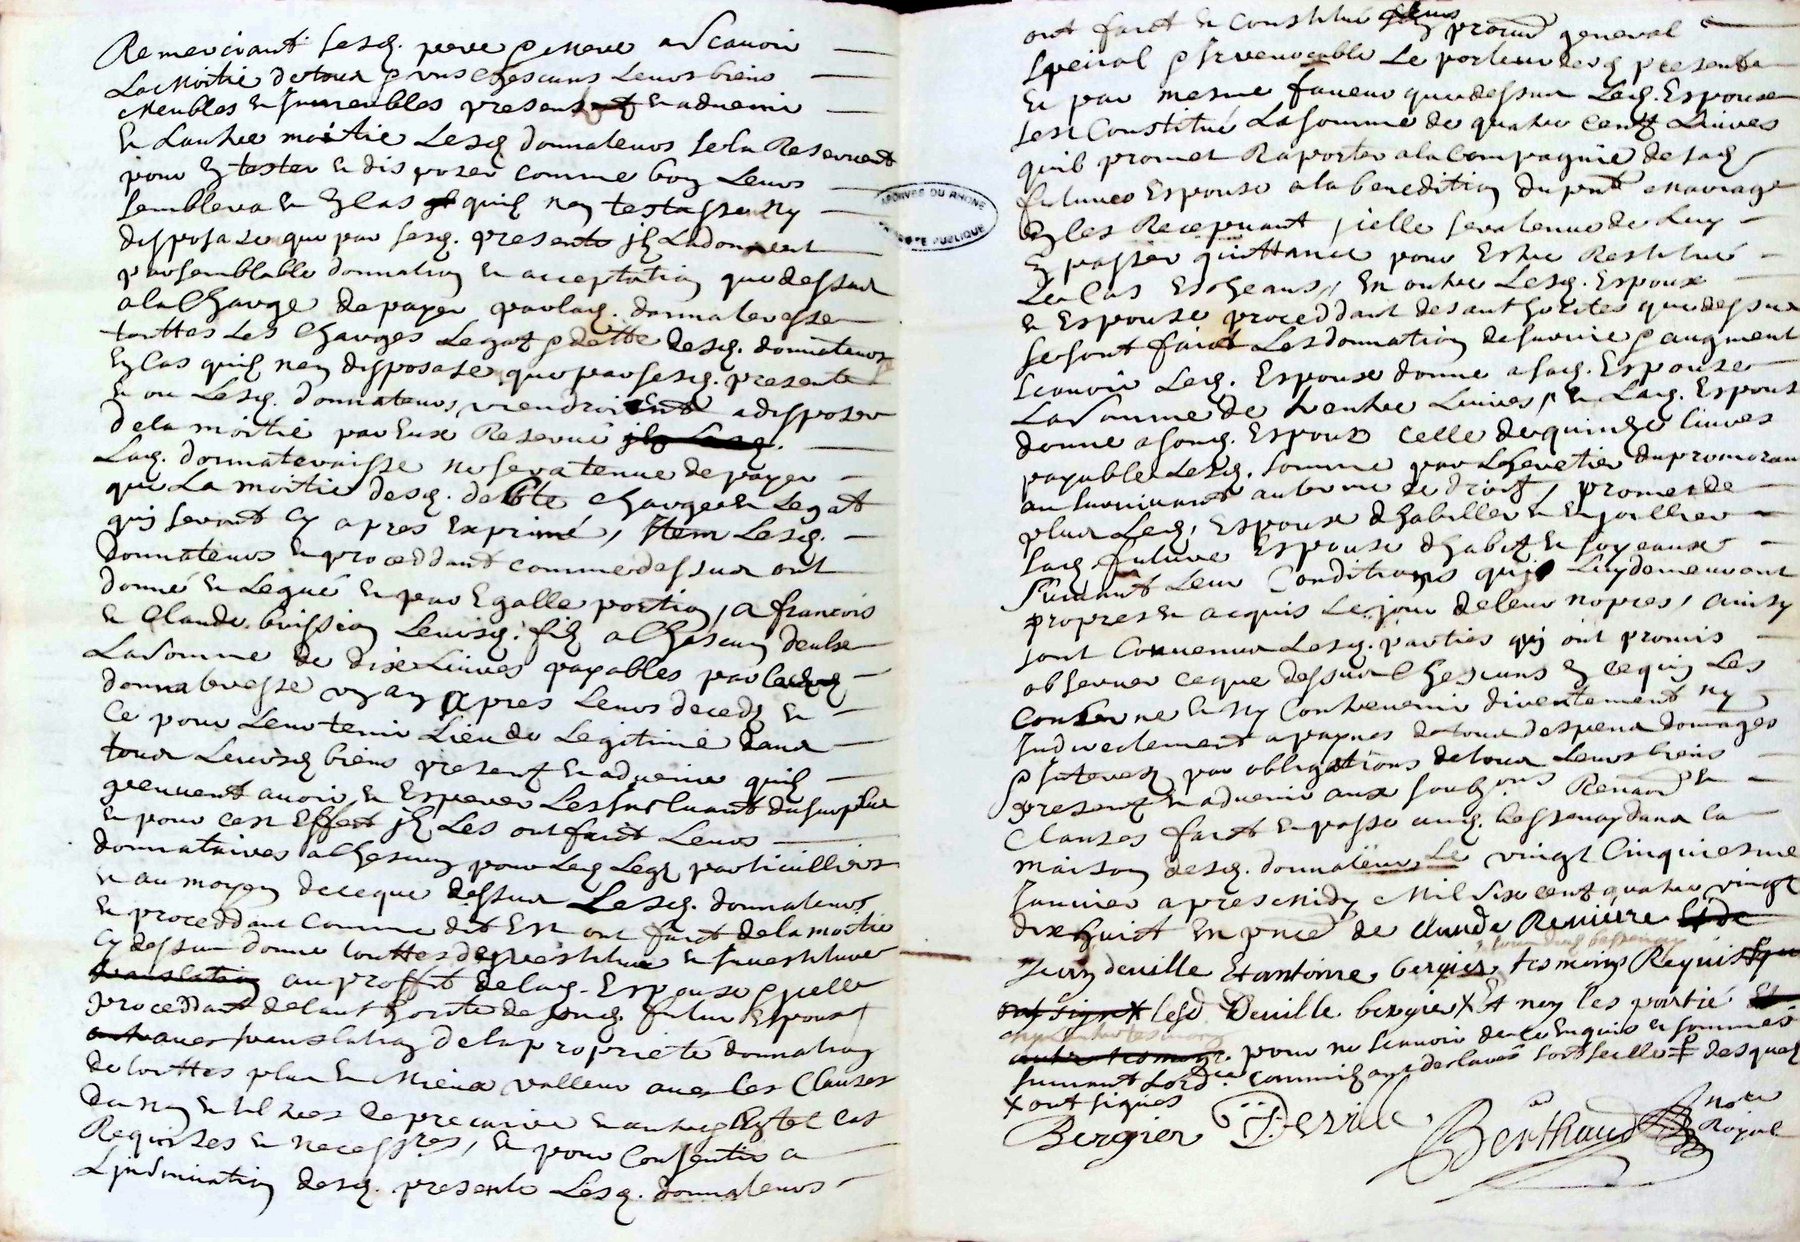 Remerciant sesd. pere & mere a scavoir
La moitié de tous & uns chescuns Leurs biens
meubles et immeubles presents et advenir
et L'autre moitié Lesd. donnateurs se la Reservent
pour en tester et disposer comme bon Leurs
semblera et en cas quils n'en testasse ny
disposase que par sesd. presente ils La donnent
par semblable donnation et acceptation que dessus
a la charge de payer par lad. donnateresse
touttes Les charges Legat & dette desd. donnateurs
En cas quils n'en disposase que par sesd. presente
et ou Lesd. donnateurs viendroient a disposer
de la moitié par Eux Reservé
Lad. donnateraisse ne sera tenue de payer
que La moitié desd. debte charge et Legat
quy seront cy apres Exprimé, Item Lesd.
donnateurs en proceddant comme dessus ont
donné et Legué et par Egalle portion, a francois
et Claude Leursd. fils a chescun d'eulx
La somme de dix Livres payables par
donnateresse un an apres Leurs decedz et
ce pour Leur tenir Lieu de Legitime dans
tous Leursd. biens present et advenir quils
peuvent avoir et Esperer Les Incluant du surplus
et pour cest Effect ils Les ont faict Leurs
donnataires a chescun pour Led. Legt particulliers
et au moyen de ce que dessus Lesd. donnateurs
en proceddant comme dit Est ont faict de la moitié
cy dessus donné touttes devestiture et Investiture
translation au proffit de lad. Espouse & ycelle
proceddant de l'authorité de sond. futur Espoux
translation de la proprieté donnation
de touttes plus et mieux valleur avec les clauses
du nom et tiltres de precaire et autres En tel cas
Requises et necessres, Et pour consentir a
L'Insinuation desd. presente Lesd. donnateurs
ont faict et constitué procur general
special & Irrevocable Le porteur desd. presente
et par mesme faveur que dessus Led. Espoux
sest Constitué La somme de quatre cent Livres
quil promet Raporter a la Compagnie de sad.
future Espouse a la benediction du pnt mariage
En les Recepvant, icelle sera tenue de Luy
En passer quittance pour Estre Restitué
Le Cas Escheans, En outre Lesd. Espoux
et Espouse proceddant des authorites que dessus
se sont faict Les donnation de survie & augment
scavoir Led. Espoux donne a sad. Espouse
La somme de trentre Livres, et Lad. Espouse
donne a sond. Espoux celle de quinze livres
payable Lesd. somme par L'heretier du premourant
au survivant au terme de droit, promet de
plus Led. Espoux d'habiller et Enjoillier
sad. future Espouse d'habit et Joyeaux
suivant Leur Conditions quy Luy demeureront
propres et acquis Le jour de leur nopces, ainsy
sont Convenus Lesd. parties quy ont promis
observer ce que dessus chescuns en ce quy Les
concerne et ny Contrevenir directement ny
Indirectement a paynes de tous despens dommages
& Interest par obligations de tous Leurs biens
present et advenir aux soub.ons Renons et
clauses faict et passé aud. bessenay dans la
maison desd. donnateurs Le vingt Cinquiesme
Janvier apres midy mil six cent quatre vingt
dix huict En pnce de claude Reniere
deville Et antoine bergier tesmoings Requis
Lesd Deville bergier X Et non Les partié
pour ne scavoir de ce Enquis et sommes
suivant Lord.ce
X ont signés
Bergier Deville
Berthaud note Royal
ARCHIVES DU RHONE